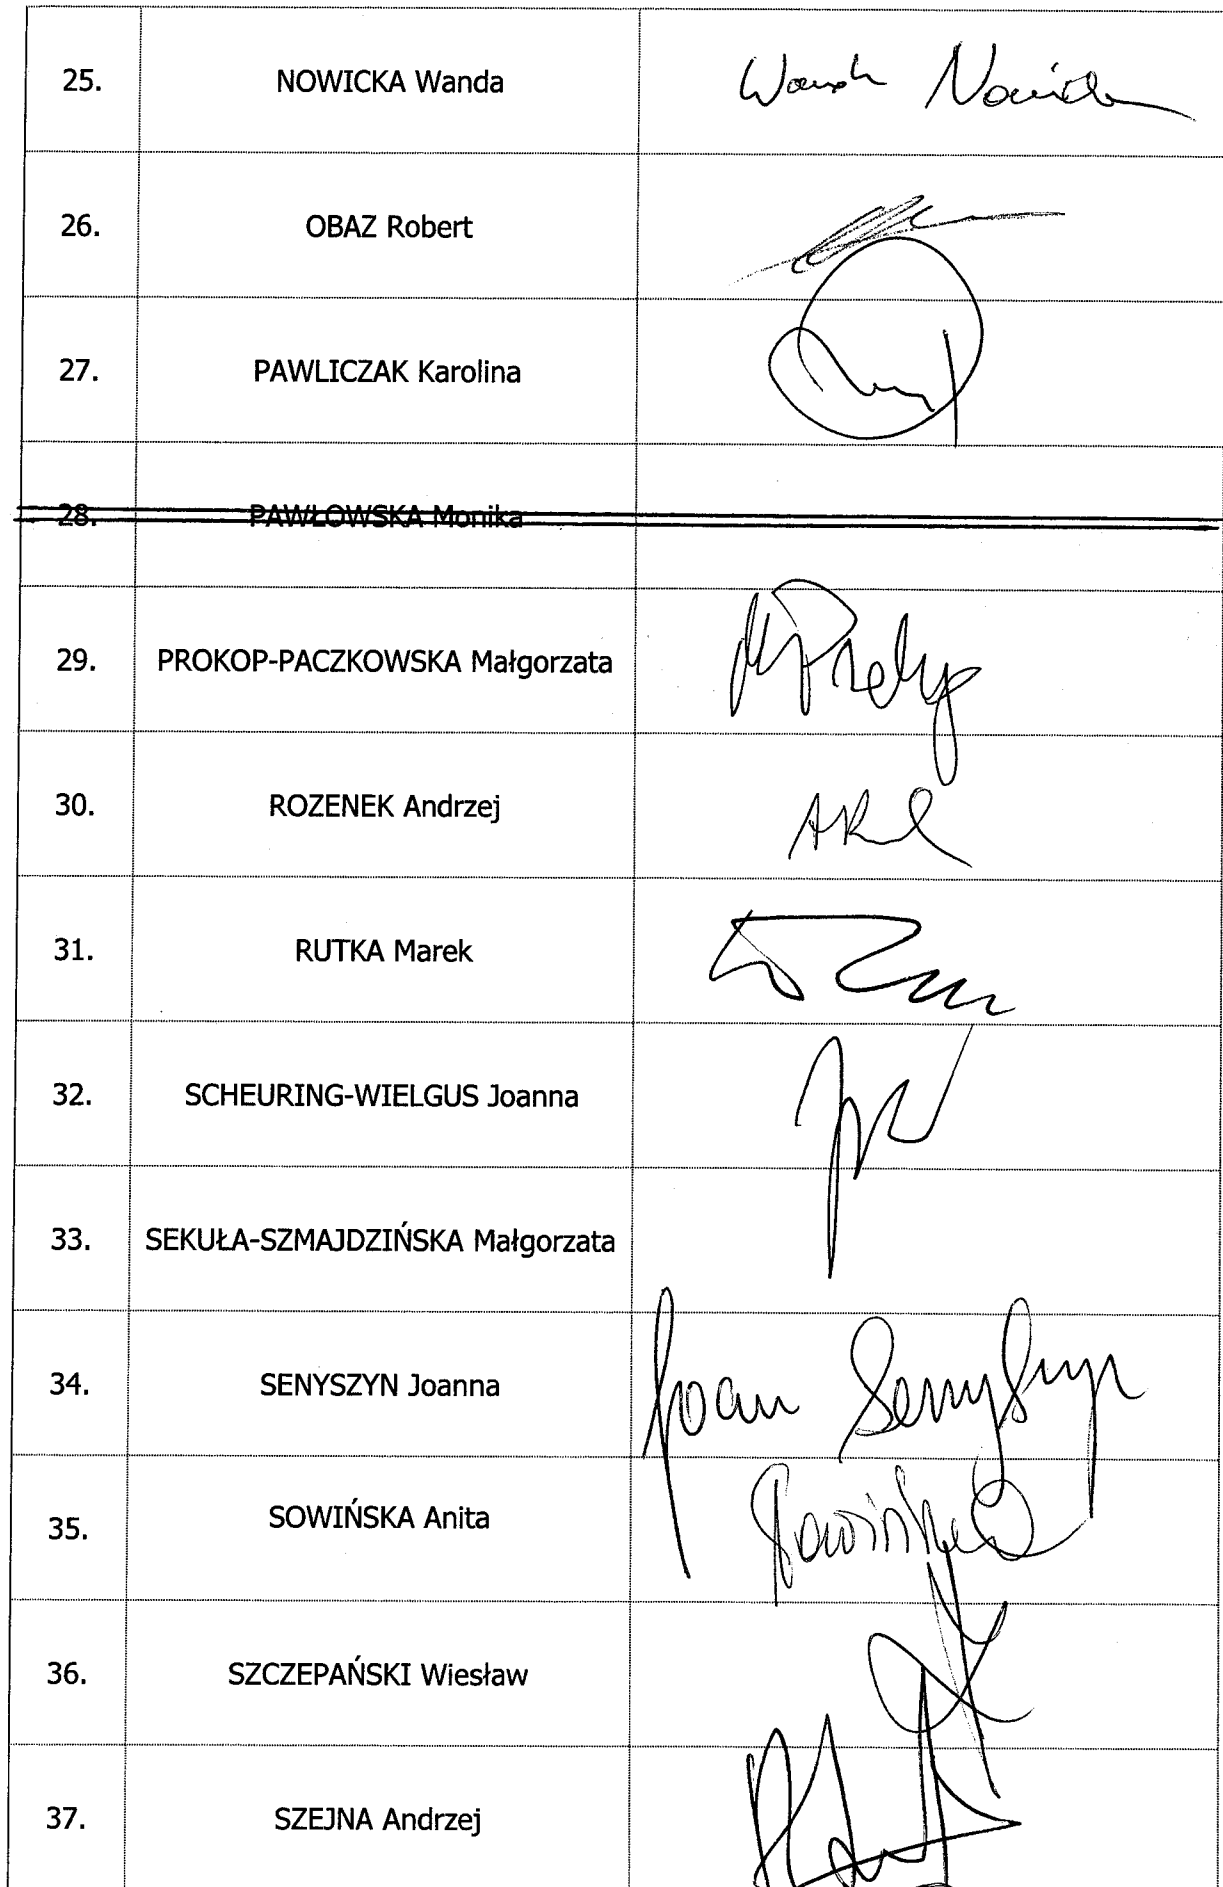 25. NOWICKA Wanda Wanda Nowicka
26. OBAZ Robert
27. PAWLICZAK Karolina
28. PAWŁOWSKA Monika
29. PROKOP-PACZKOWSKA Małgorzata
30. ROZENEK Andrzej
31. RUTKA Marek
32. SCHEURING-WIELGUS Joanna
33. SEKUŁA-SZMAJDZIŃSKA Małgorzata
34. SENYSZYN Joanna Joan Senyszyn
35. SOWIŃSKA Anita Sowińska
36. SZCZEPAŃSKI Wiesław
37. SZEJNA Andrzej